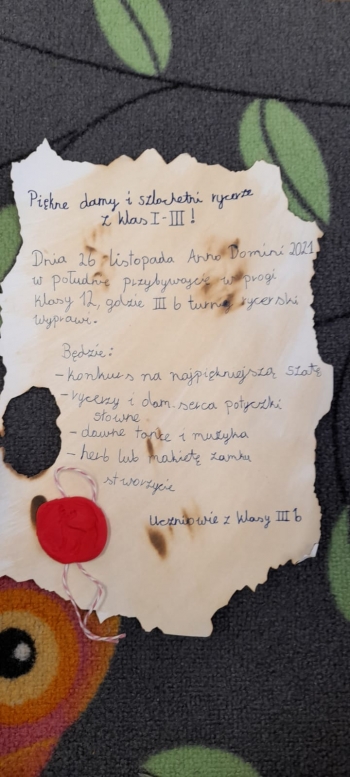 Piękne damy i szlachetni rycerze
z klas I-III!
Dnia 26 listopada Anno Domini 2021
w południe przybywajcie w progi
klasy 12, gdzie III b turniej rycerski
wyprawi.
Będzie:
- konkurs na najpiękniejszą szatę
- rycerzy i dam serca potyczki
słowne
- dawne tańce i muzyka
- herb lub makietę zamku
stworzycie
Uczniowie z klasy III b